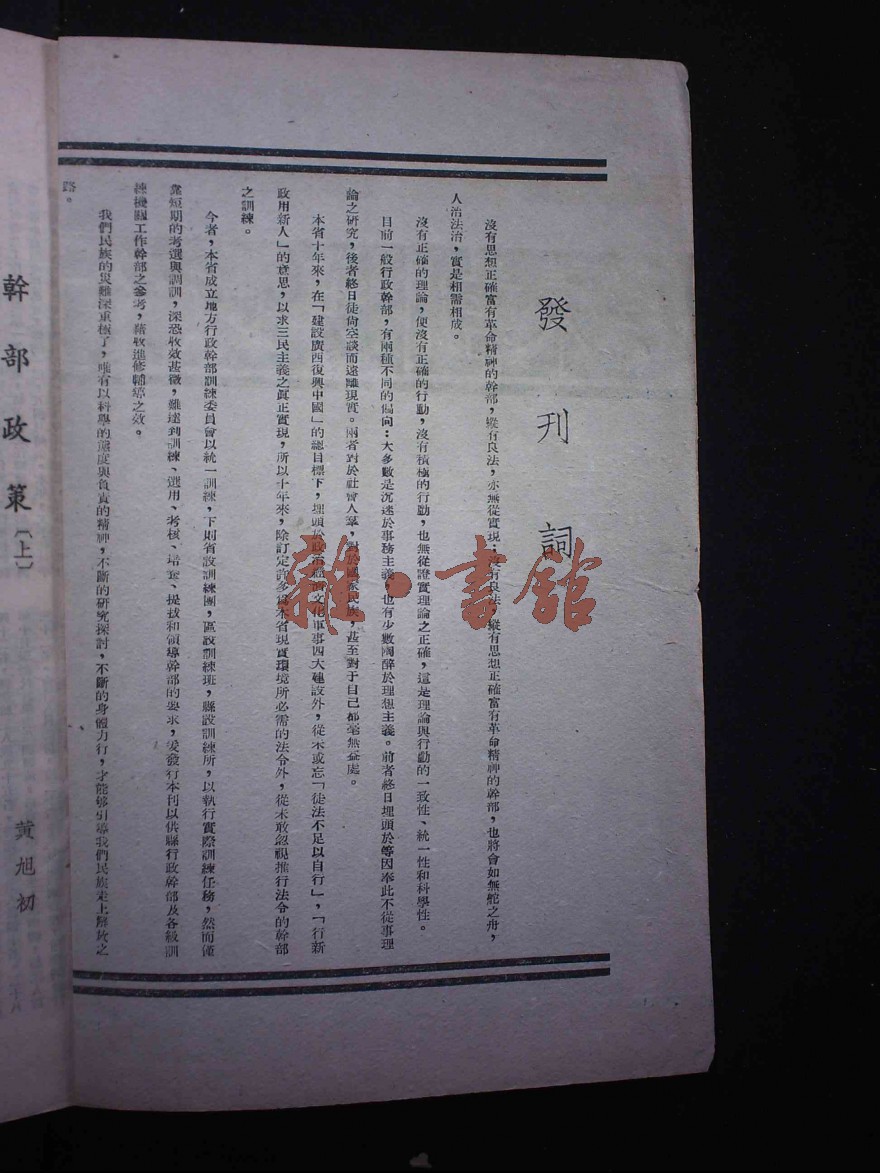 發刊詞
沒有思想正確富有革命精神的幹部，縱有良法，亦無從實現；沒有良法，縱有思想正確富有革命精神的幹部，也將會如無舵之舟，
人治法治，實是相需相成。
沒有正確的理論，便沒有正確的行動，沒有積極的行動，也無從證實理論之正確，這是理論與行動的一致性、統一性和科學性。
目前一般行政幹部，有兩種不同的偏向：大多數是沉迷於事務主義，也有少數陶醉於理想主義。前者終日埋頭於等因奉此不從事理
論之研究，後者終日徒尙空談而遠離現實。兩者對於社會人羣，對於國家民族，甚至對于自己都毫無益處。
本省十年來，在「建設廣西復興中國」的總目標下，埋頭於政治經濟文化軍事四大建設外，從未或忘「徒法不足以自行」，「行新
政用新人」的意思，以求三民主義之眞正實現，所以十年來，除訂定許多爲本省現實環境所必需的法令外，從未敢忽視推行法令的幹部
之訓練。
今者，本省成立地方行政幹部訓練委員會以統一訓練，下則省設訓練團，區設訓練班，縣設訓練所，以執行實際訓練任務，然而僅
靠短期的考選與調訓，深恐收效甚微，難達到訓練、選用、考核、培養、提拔和領導幹部的要求，爰發行本刊以供縣行政幹部及各級訓
練機關工作幹部之參考，藉收進修輔導之效。
我們民族的災難深重極了，唯有以科學的態度與負責的精神，不斷的研究探討，不斷的身體力行，才能够引導我們民族走上解放之
路。
幹部政策〔上〕
黃旭初
雜·書館